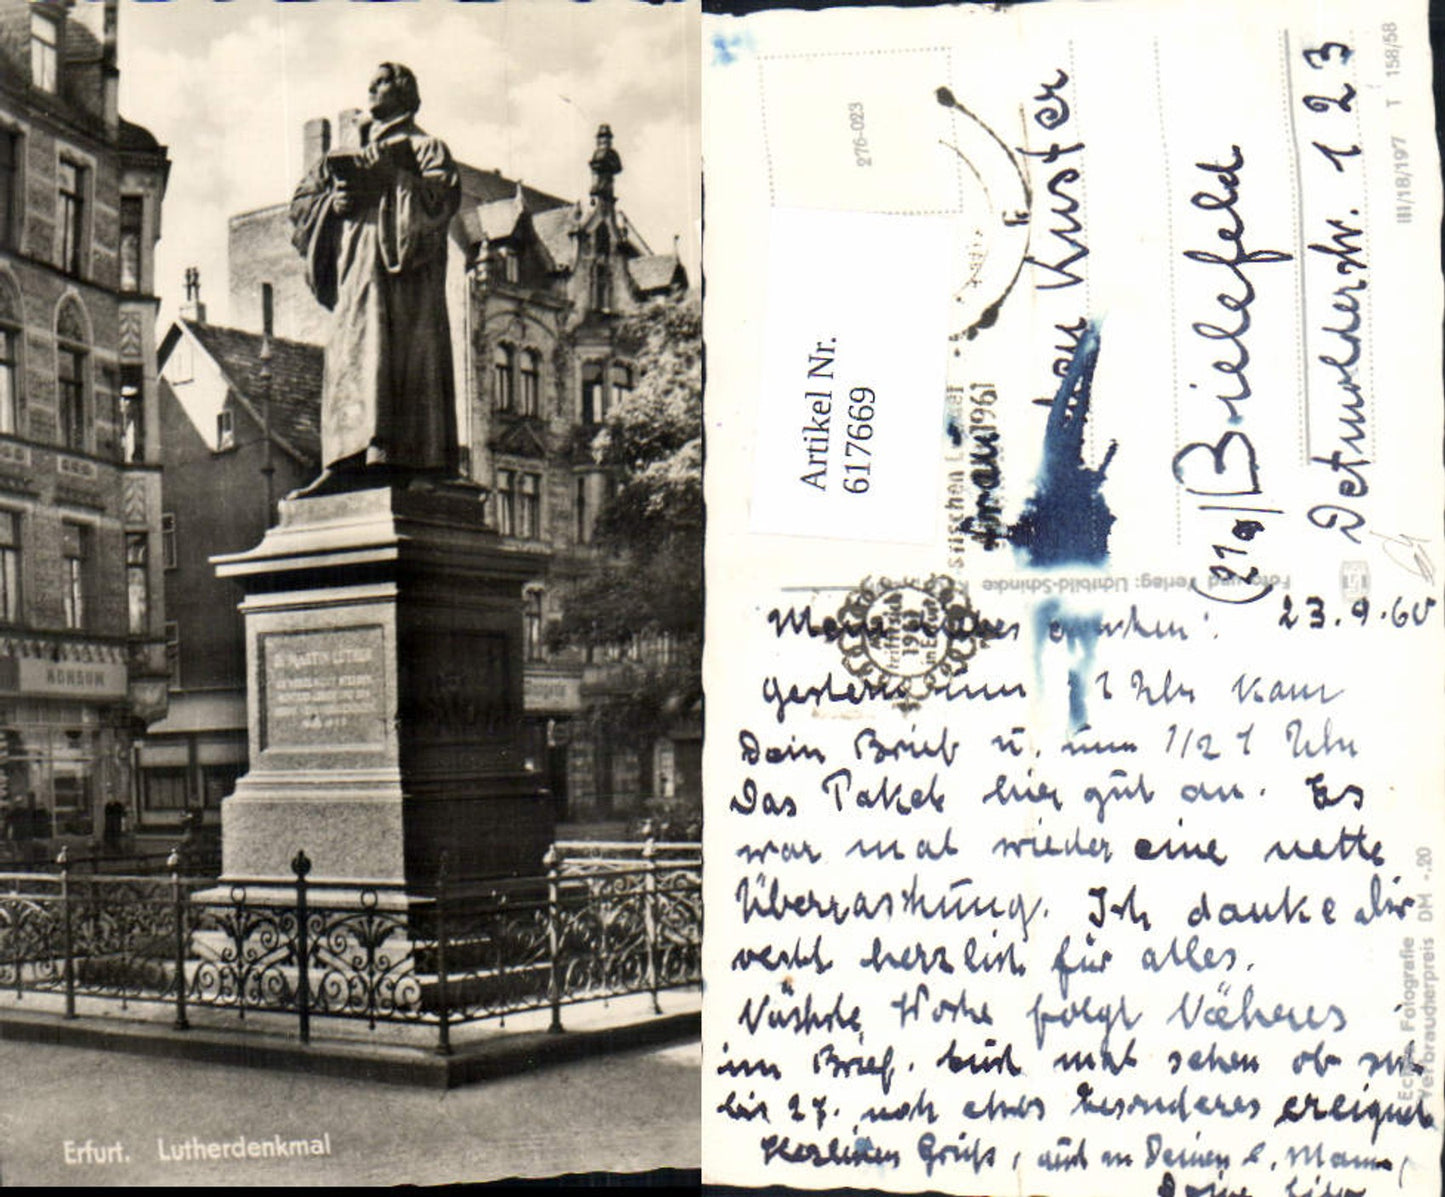 KONSUM
Dr MARTIN LUTHER
Erfurt. Lutherdenkmal
276-023
Artikel Nr.
617669
Frau
Kuster
(21a) Bielefeld
Detmolderstr. 123
1961
1961
in Erfurt
Foto und Verlag: Lichtbild-Schincke
III/18/197 T 158/58
Echte Fotografie
Verbraucherpreis DM -.20
23.9.60
Gestern um Uhr kam
Dein Brief u. um 1/2 1 Uhr
Das Paket hier gut an. Es
war mal wieder eine nette
Überraschung. Ich danke dir
recht herzlich für alles.
Nächste Woche folgt Näheres
im Brief. mal sehen ob sich
bis 27. noch etwas besonderes ereignet
Herzlichen Gruß, auch an Deinen l. Mann,
Deine